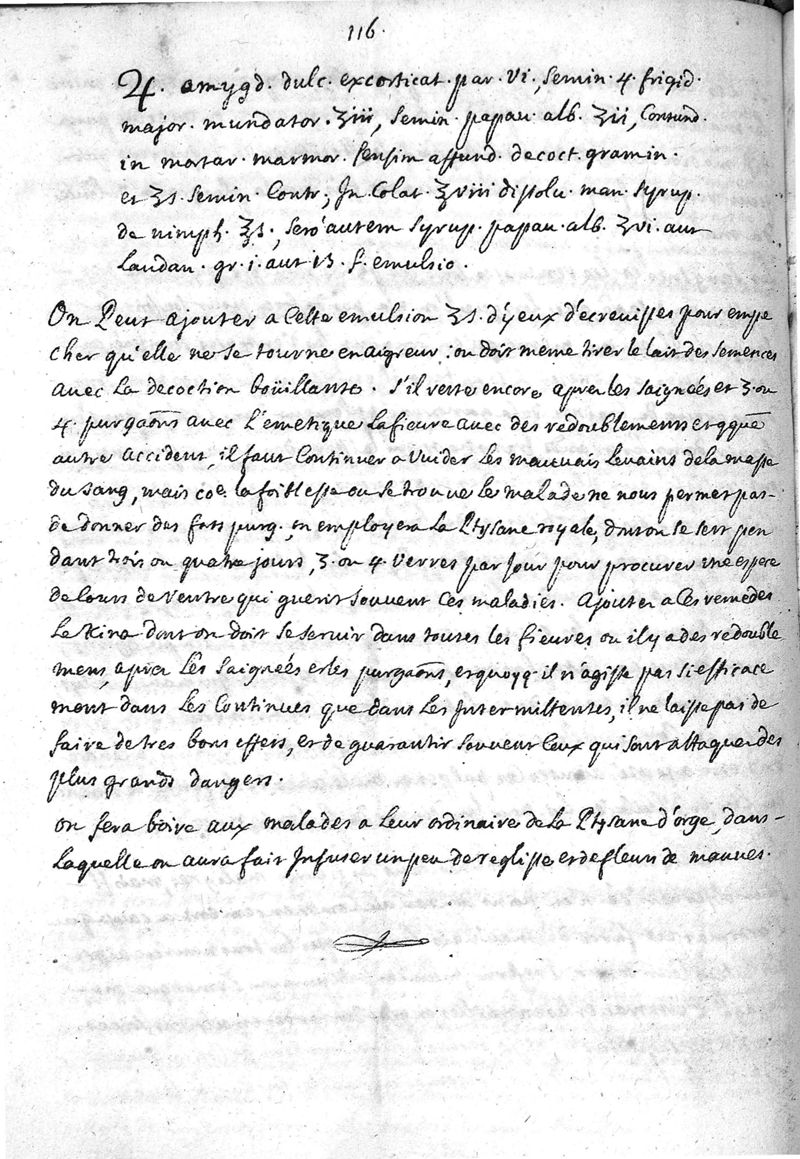 116.
♃. amygd. dulc. excorticat. par. vi, semin. 4. frigid.
major. mundator. ʒiii, semin. papau. alb. ʒii, Contund.
in mortar. marmor. sensim affund. decoct. gramin.
et ʒs. semin. Contr; In Colat. ℥viii dissolu. man. syrup.
de nimph. ℥s., sero autem syrup. papau. alb. ʒvi. aut
Laudan. gr. i. aut 13. f. emulsio.
On Peut ajouter a Cette emulsion ʒs. d'yeux d'ecreuisses pour empe
cher qu'elle ne se tourne en aigreur; on doit meme tirer le lait des semences
avec La decoction boüillante. S'il reste encore apres les saignées et 3. ou
4. purgaõns avec L'emetique La fieure avec des redoublements et qque
autre accident, il faut Continuer a Vuider Les mauuais Leuains de la masse
du sang, mais cõe. la foiblesse ou se trouue le malade ne nous permet pas
de donner des forts purg. on employera La Ptysane royale, dont on se sert pen
dant trois ou quatre jours, 3. ou 4. Verres par Jour pour procurer une espece
de Cours de Ventre qui guerit souuent Ces maladies. Ajouter a Ces remedes
Le Kina dont on doit se seruir dans toutes les fieures ou il y a des redouble
mens, apres Les saignées et les purgaõns, et quoyq. il n'agisse pas si efficace
ment dans Les Continues que dans Les Intermittentes, il ne laisse pas de
faire de tres bons effets, et de guarantir souuent Ceux qui sont attaquer des
plus grands dangers.
On fera boire aux malades a Leur ordinaire de La Ptysane d'orge, dans
Laquelle on aura fait Infuser un peu de reglisse et de fleurs de mauues.